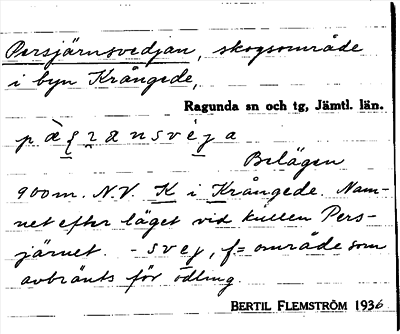 Persjärnsvedjan, skogsområde
i byn Krångede,
Ragunda sn och tg, Jämtl. län.
Belägen
900 m. N.V. K i Krångede. Nam-
net efter läget vid kullen Pers-
järnet. - svej, f = område som
avbränts för odling.
BERTIL FLEMSTRÖM 1936